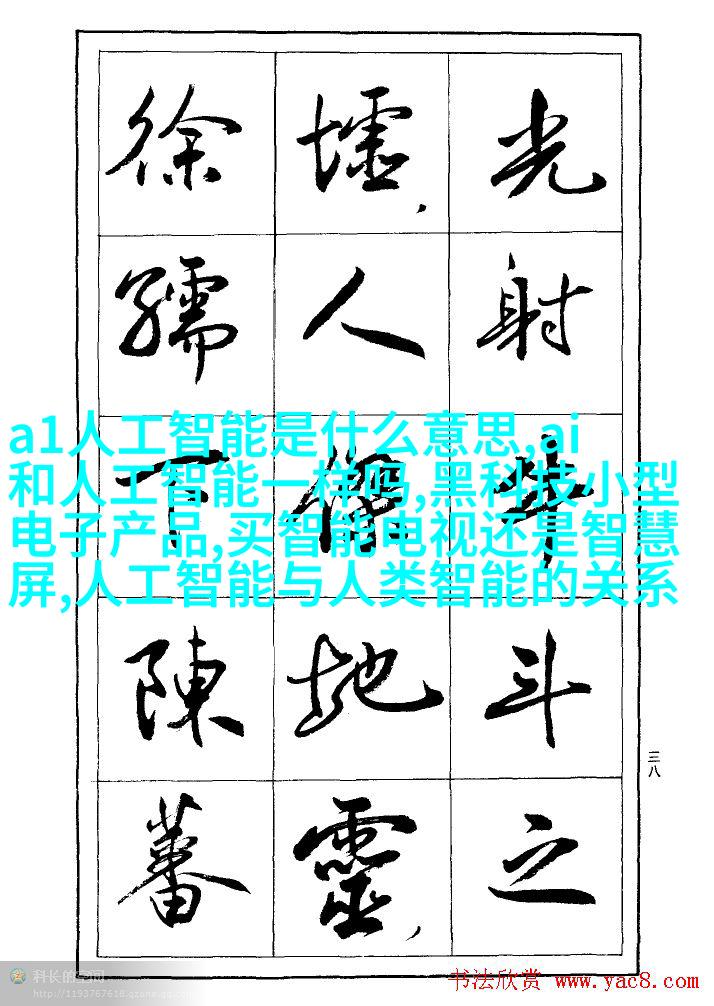 光射牛斗之
墟，人傑地靈，
徐孺下陳蕃
a1人工智能是什么意思,ai
和人工智能一样吗,黑科技小型
电子产品,买智能电视还是智慧
屏,人工智能与人类智能的关系
三八
科长的空间
http://1193767618.qzone.qq.com
书法欣赏 www.yac8.com